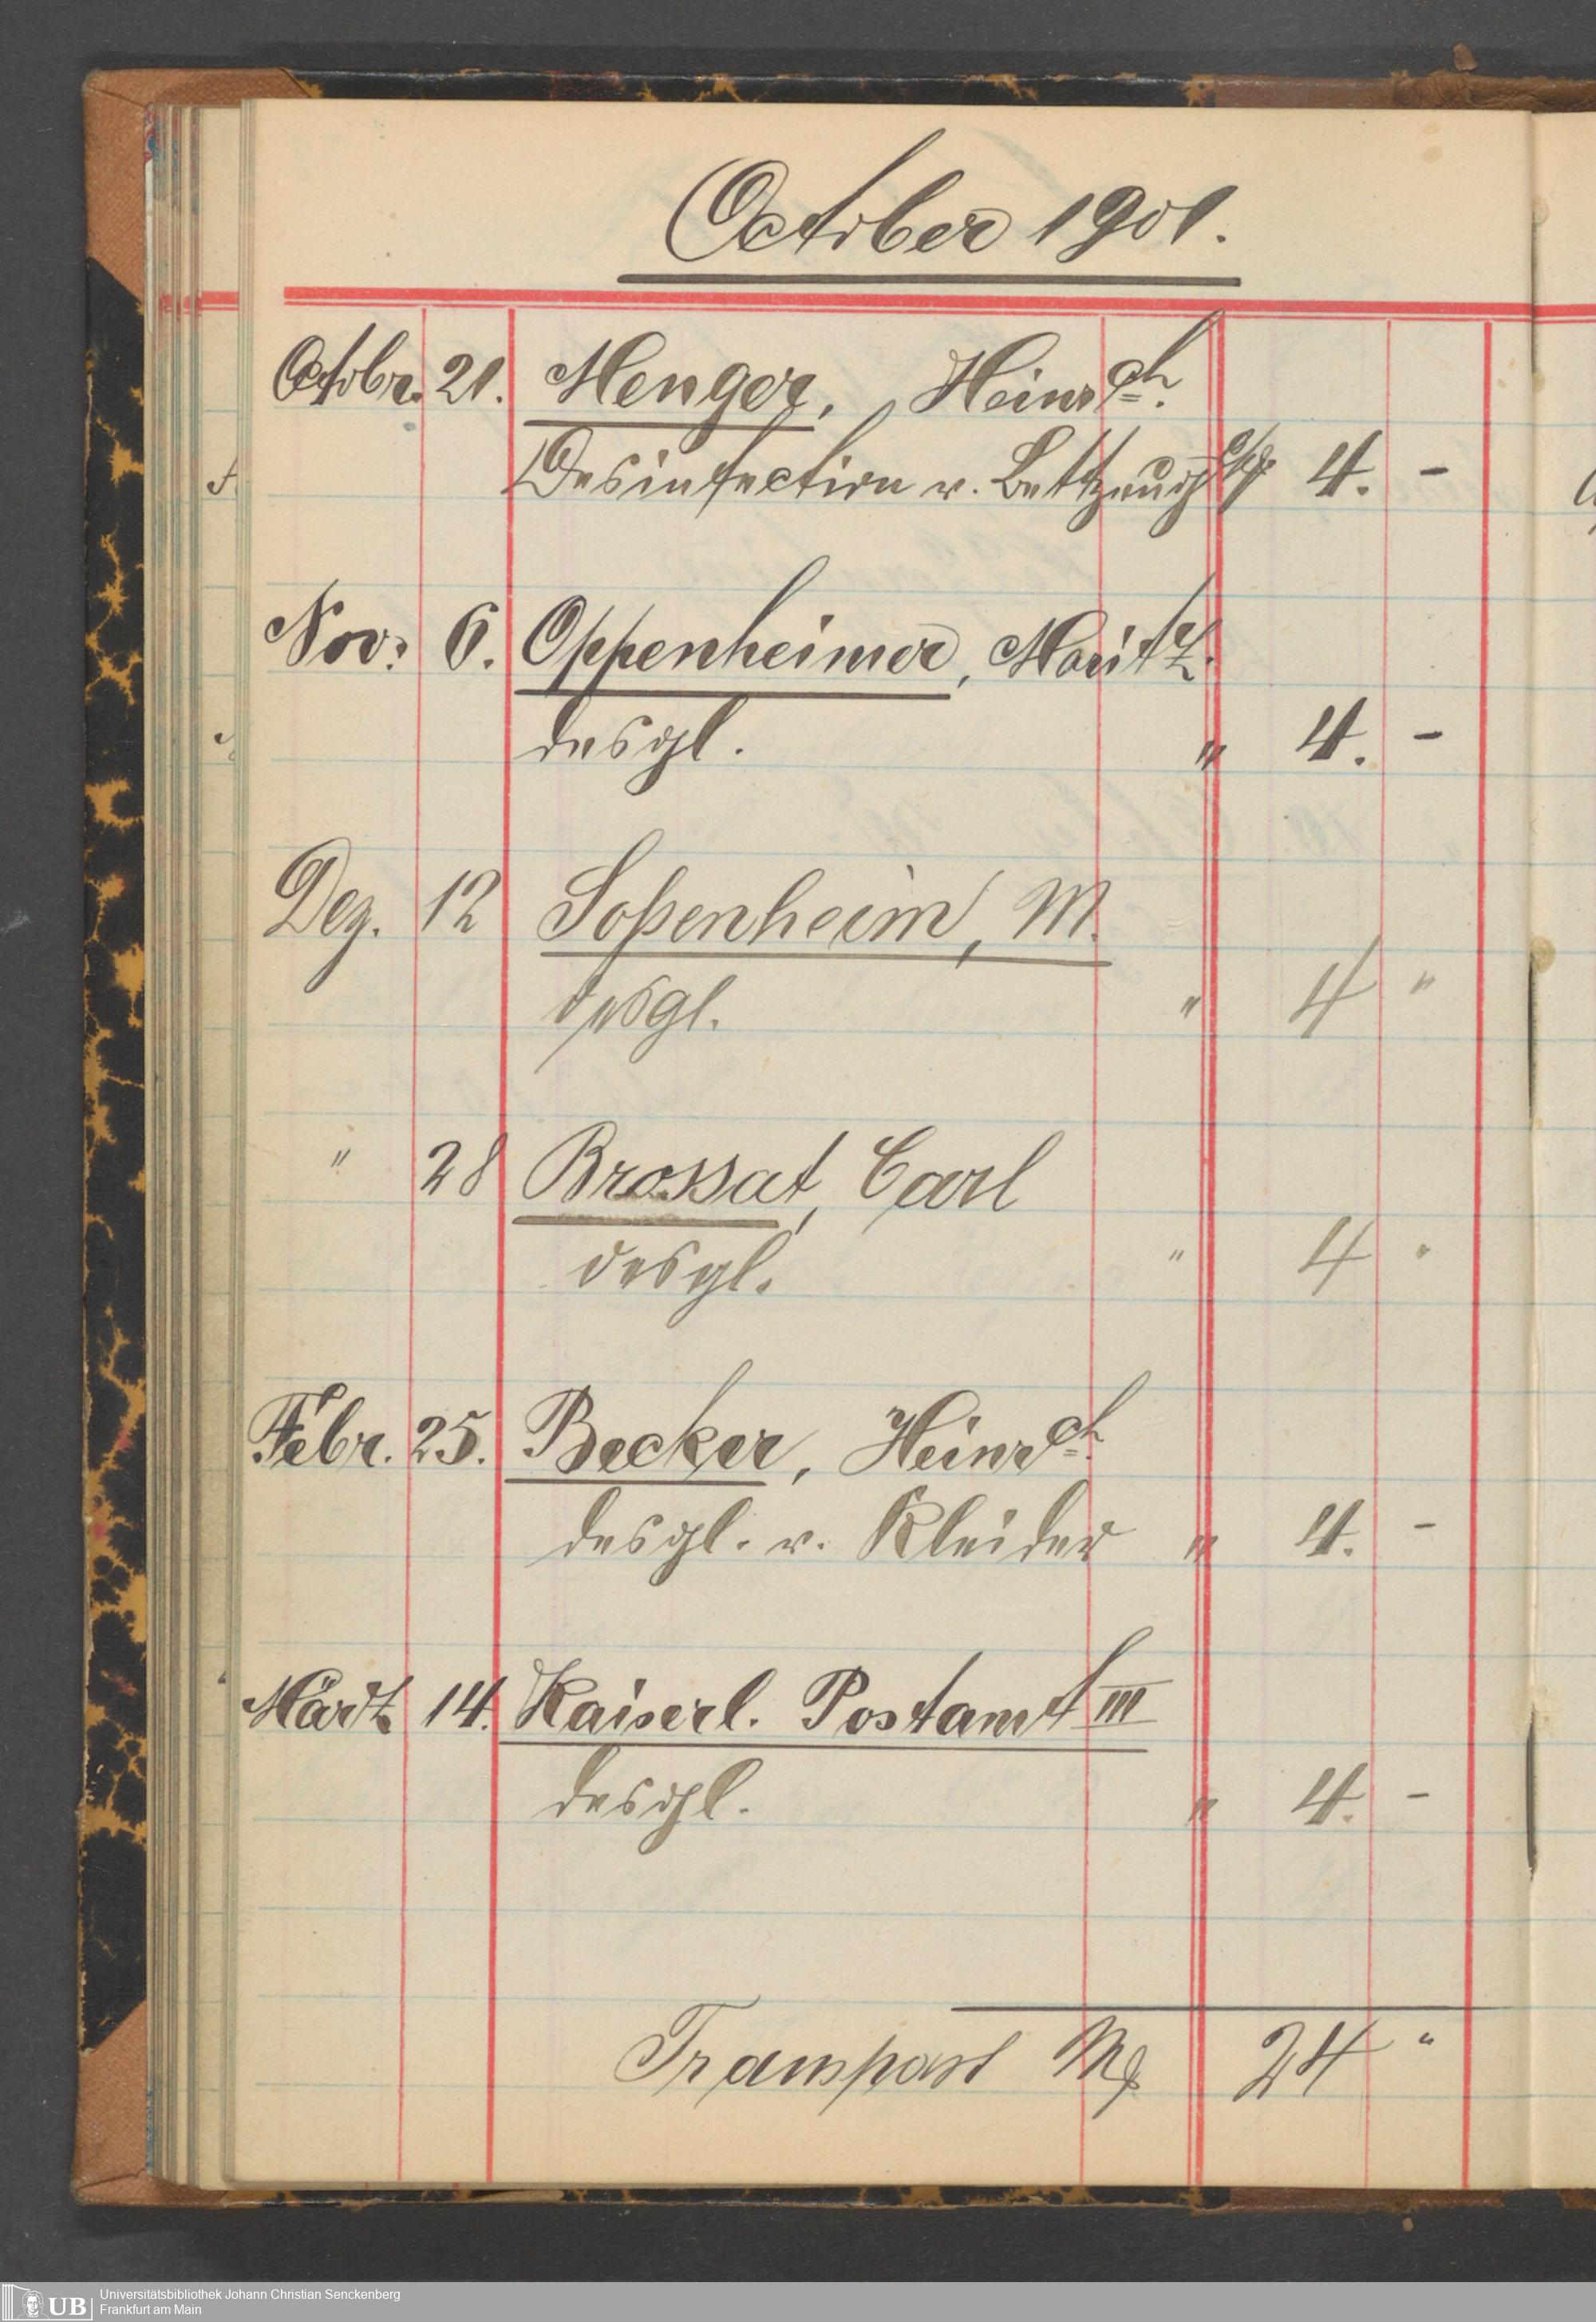 October 1901.
Octobr. 21. Menger, Heinrch.
Desinfection v. Bettzeug M 4. -
Nov: 6. Oppenheimer, Moritz.
desgl. " 4. -
Dez. 12 Soßenheim, M.
desgl. " 4 "
" 28 Brossat, Carl
desgl. " 4 "
Febr. 25. Becker, Heinrch.
desgl. v. Kleider " 4. -
Märtz 14. Kaiserl. Postamt III
desgl. " 4. -
Transport M 24 "
UB Universitätsbibliothek Johann Christian Senckenberg
Frankfurt am Main